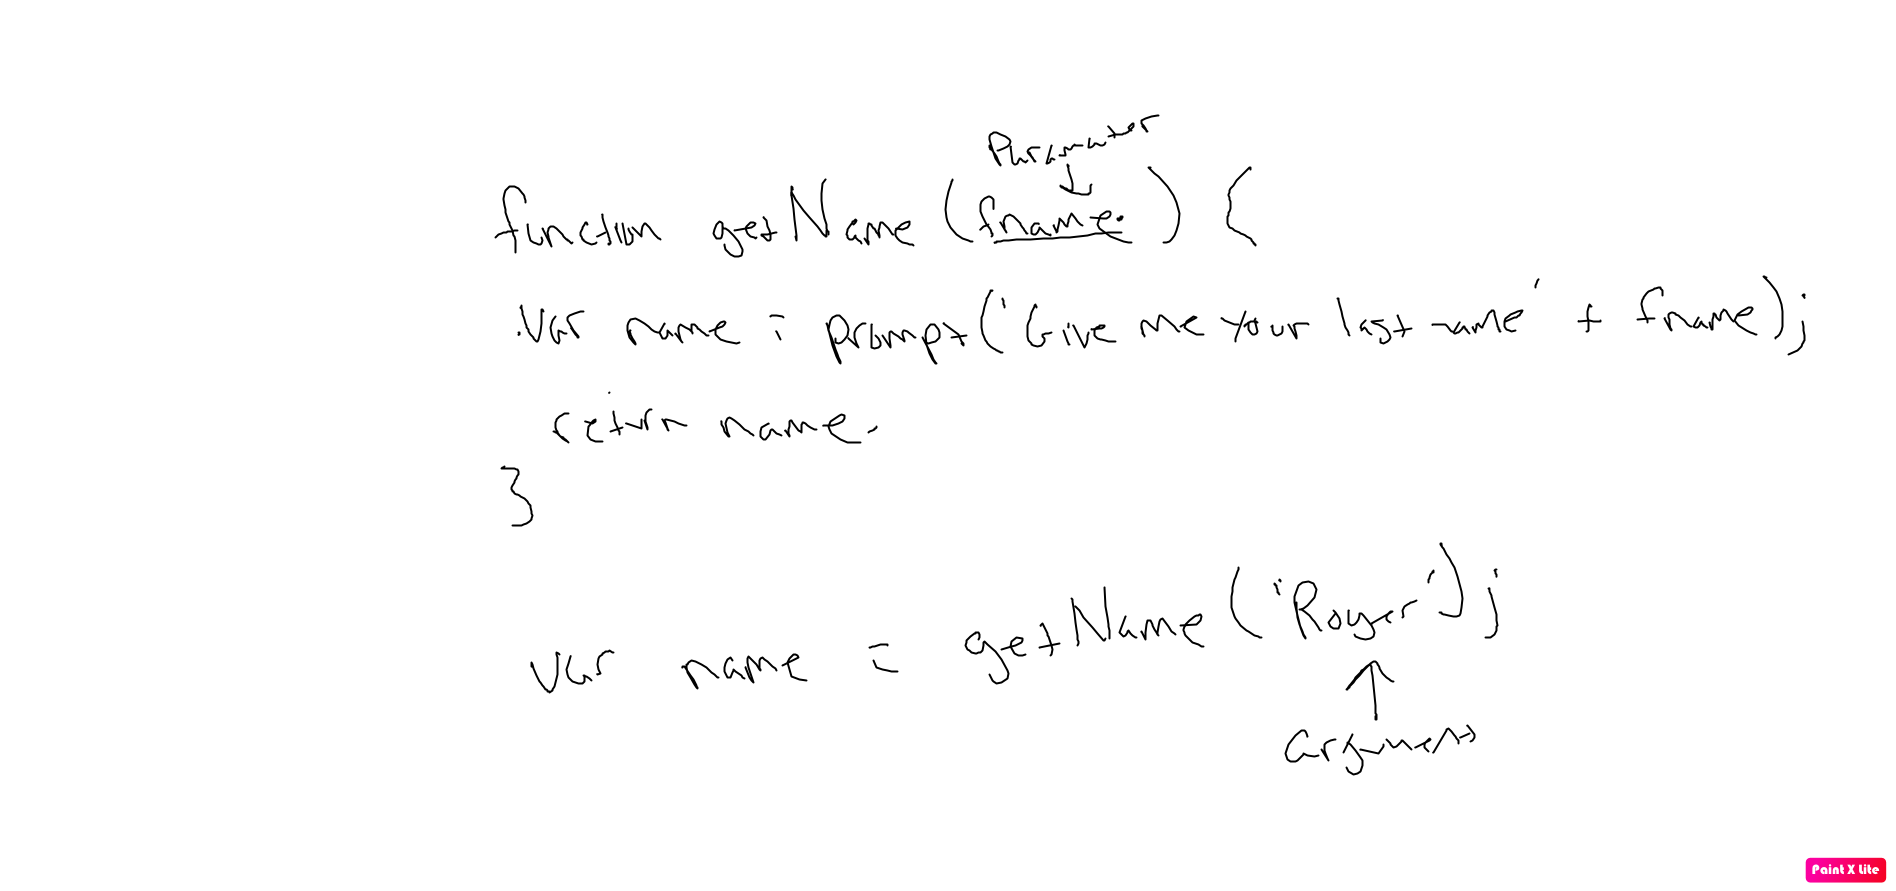 Paramater
function getName (fname) {
var name = prompt('Give me your last name' + fname);
return name.
}
var name = getName('Roger');
argument
Paint X Lite